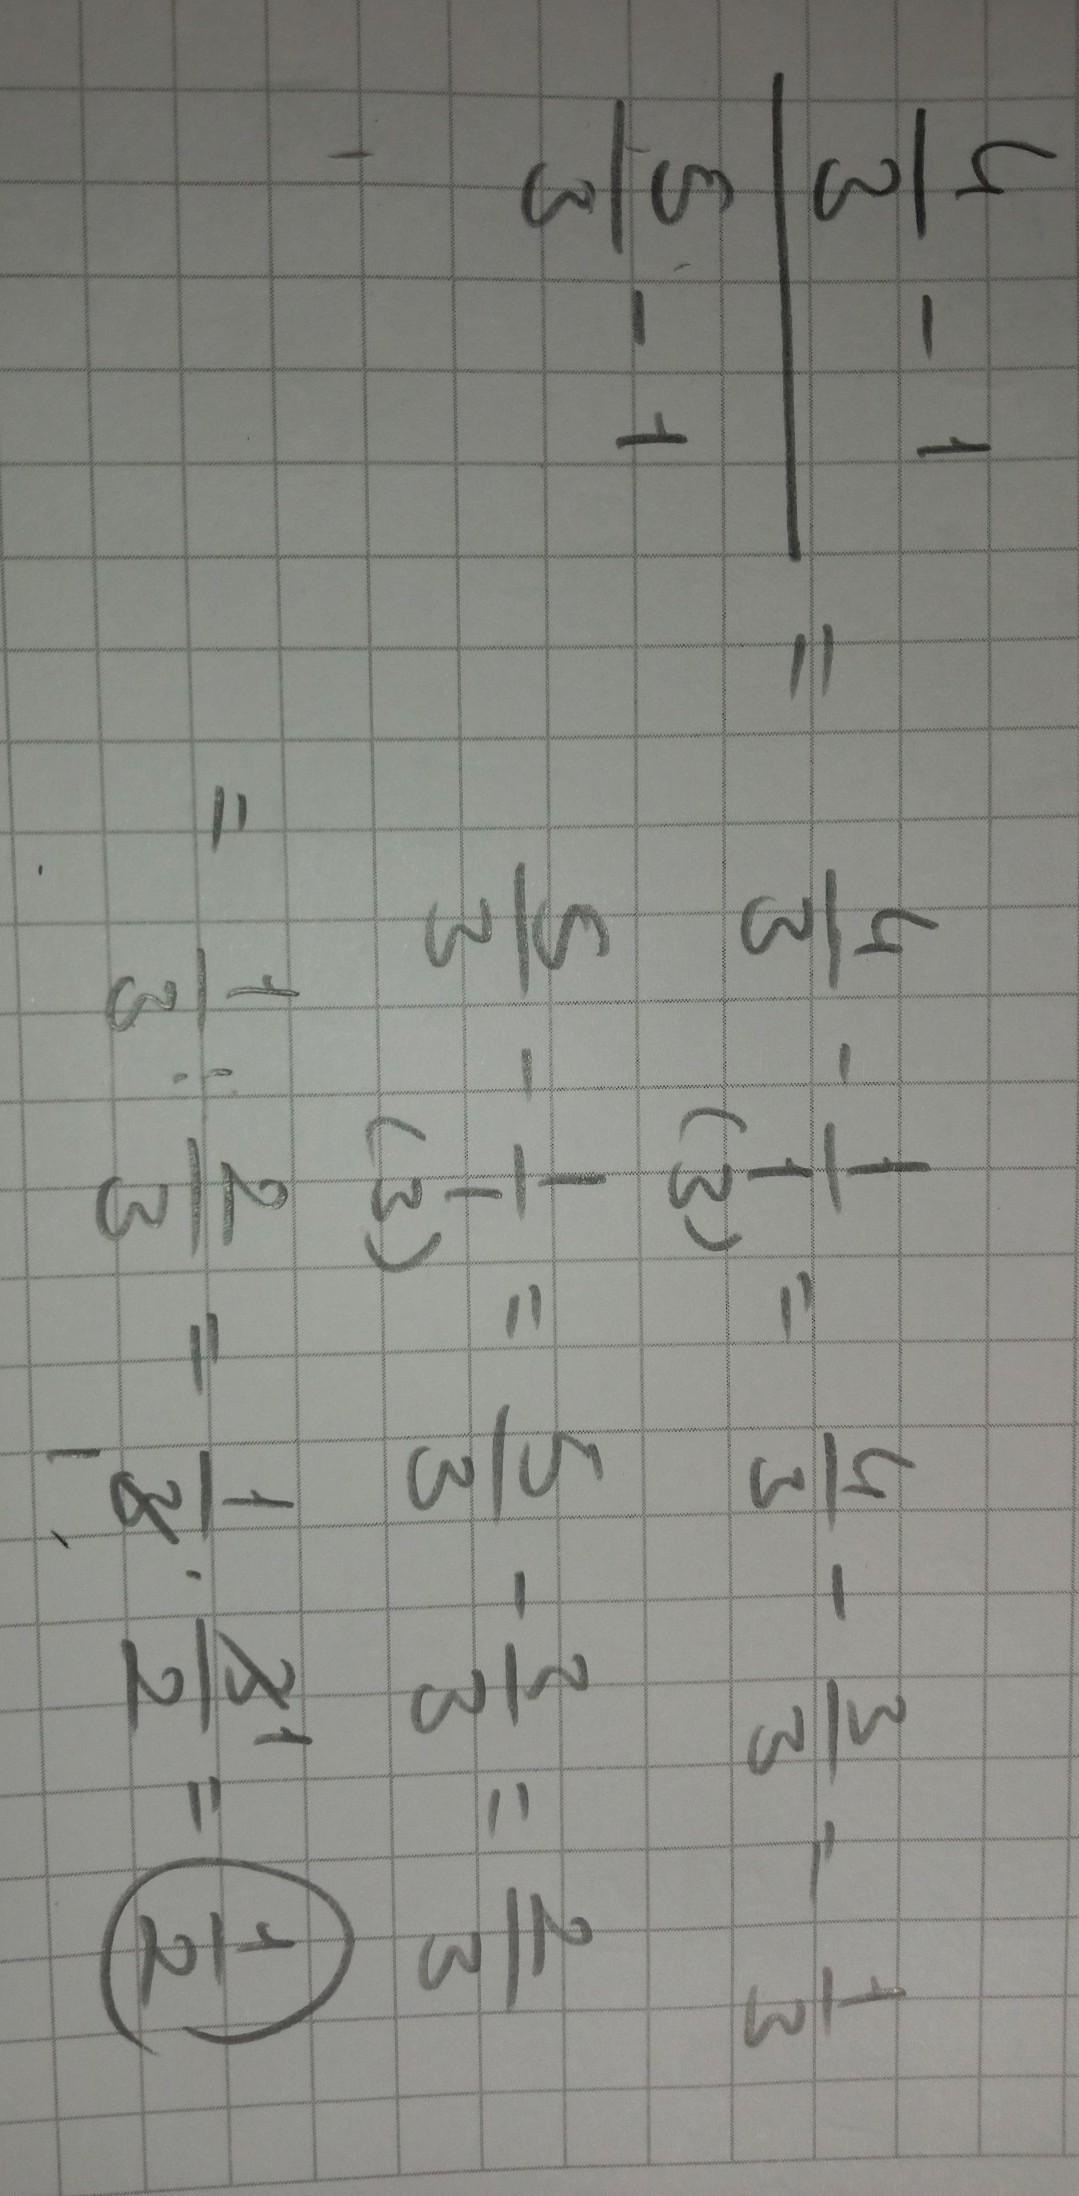 4/3 - 1 / 5/3 - 1 =
4/3 - 1/1 (3) = 4/3 - 3/3 = 1/3
5/3 - 1/1 (3) = 5/3 - 3/3 = 2/3
= 1/3 : 2/3 = 1/3 · 3/2 = 1/2